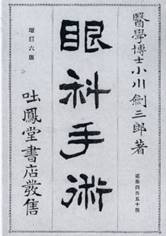 醫學博士小川劍三郎著
眼科手術
增訂六版
吐鳳堂書店發售